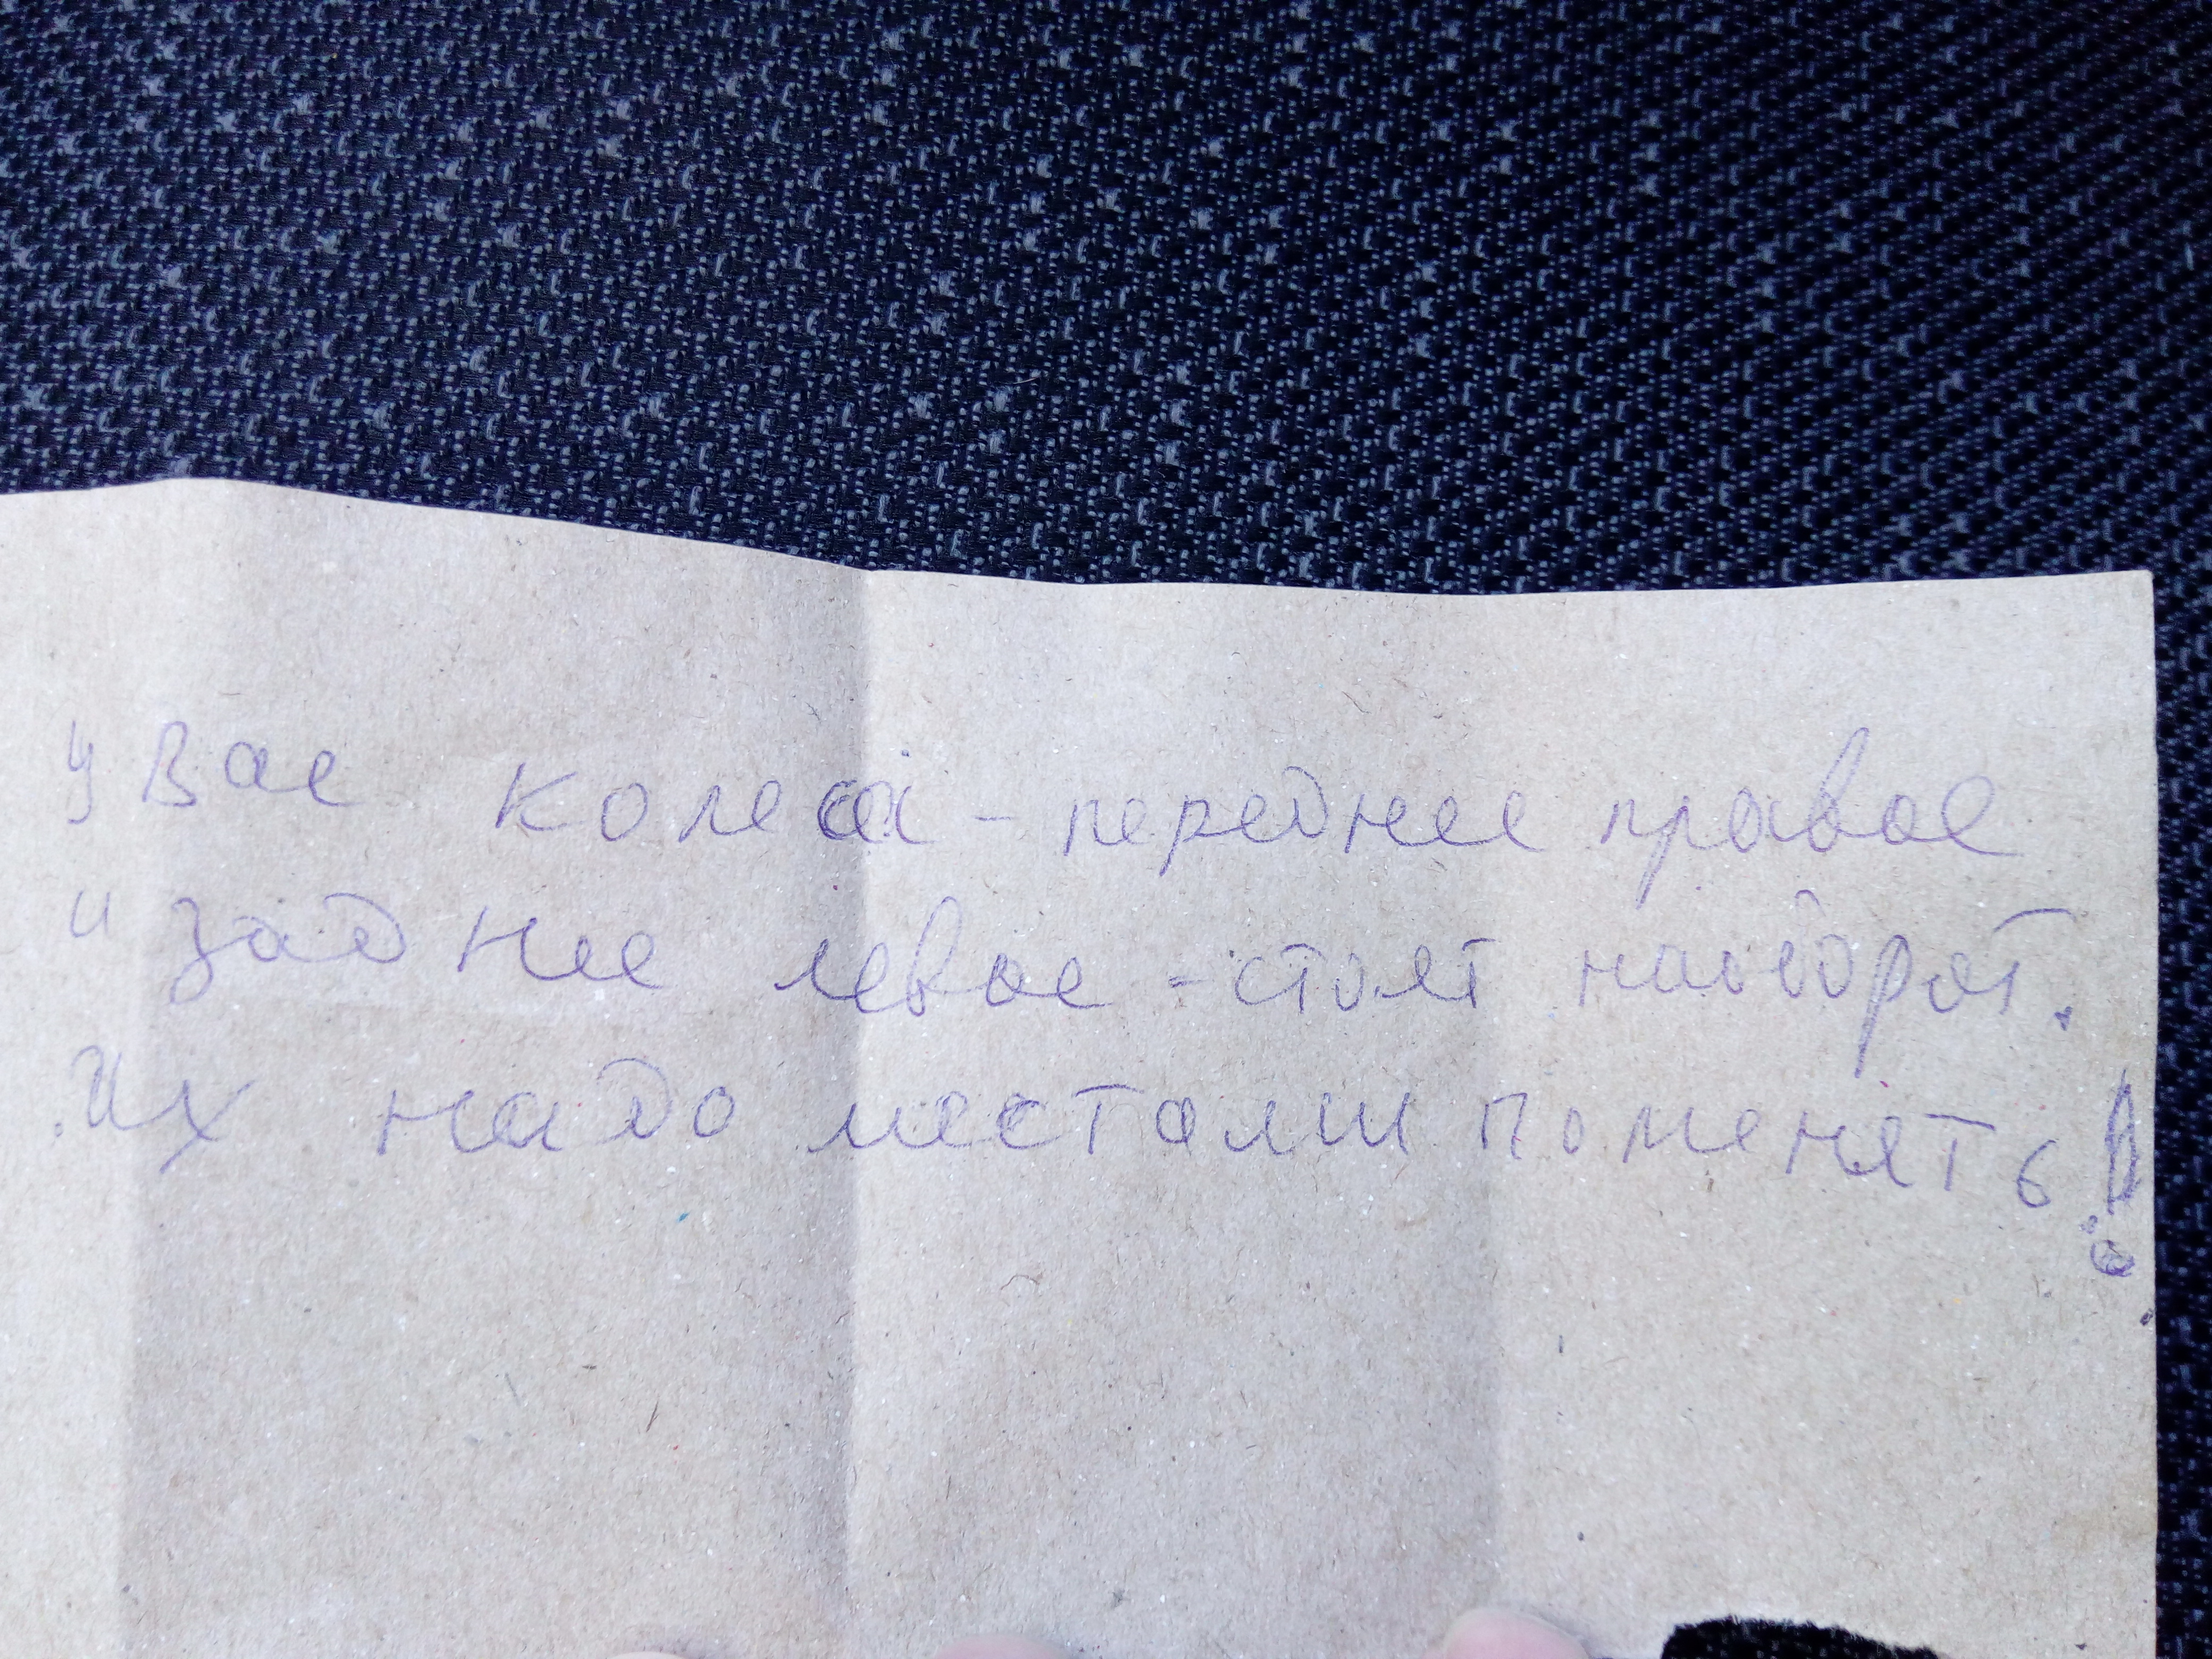 у Вас колеса - переднее правое
и заднее левое - стоят наоборот.
Их надо местами поменять!